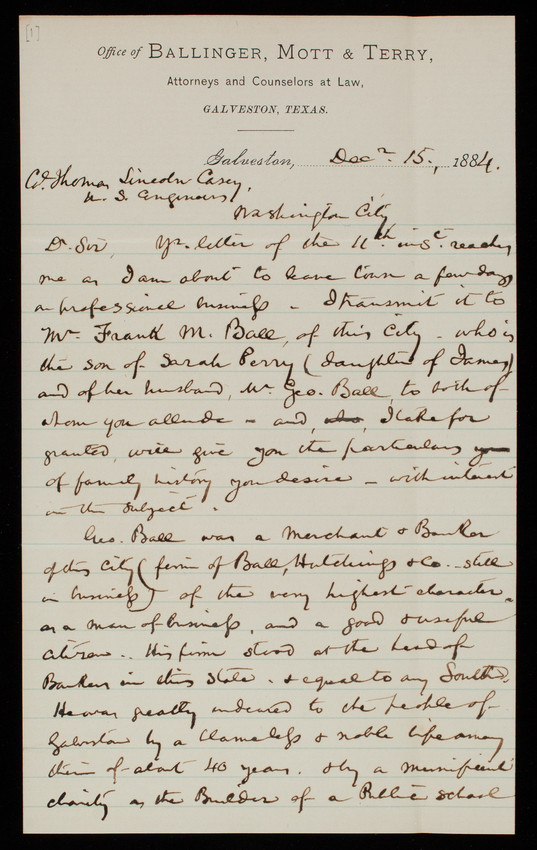 [1]
Office of BALLINGER, MOTT & TERRY,
Attorneys and Counselors at Law,
GALVESTON, TEXAS.
Galveston, Decr. 15., 1884.
Col. Thomas Lincoln Casey,
U. S. Engineers,
Washington City,
Dr Sir, Yr. letter of the 11th inst. reaches
me as I am about to leave town a few days
on professional business - I transmit it to
Mr. Frank M. Ball, of this City - who is
the son of Sarah Perry (daughter of James)
and of her husband, Mr Geo. Ball, to both of
whom you allude - and, who, I take for
granted, will give you the particulars
of family history you desire - with interest
in the subject.
Geo. Ball was a Merchant & Banker
of this City (firm of Ball, Hutchings & Co. - still
in business) of the very highest character -
as a man of business, and a good & useful
citizen.. His firm stood at the head of
Bankers in this State - & equal to any South.
He was greatly endeared to the people of
Galveston by a blameless & noble life among
them of about 40 years. & by a munificent
charity as the Builder of a Public School